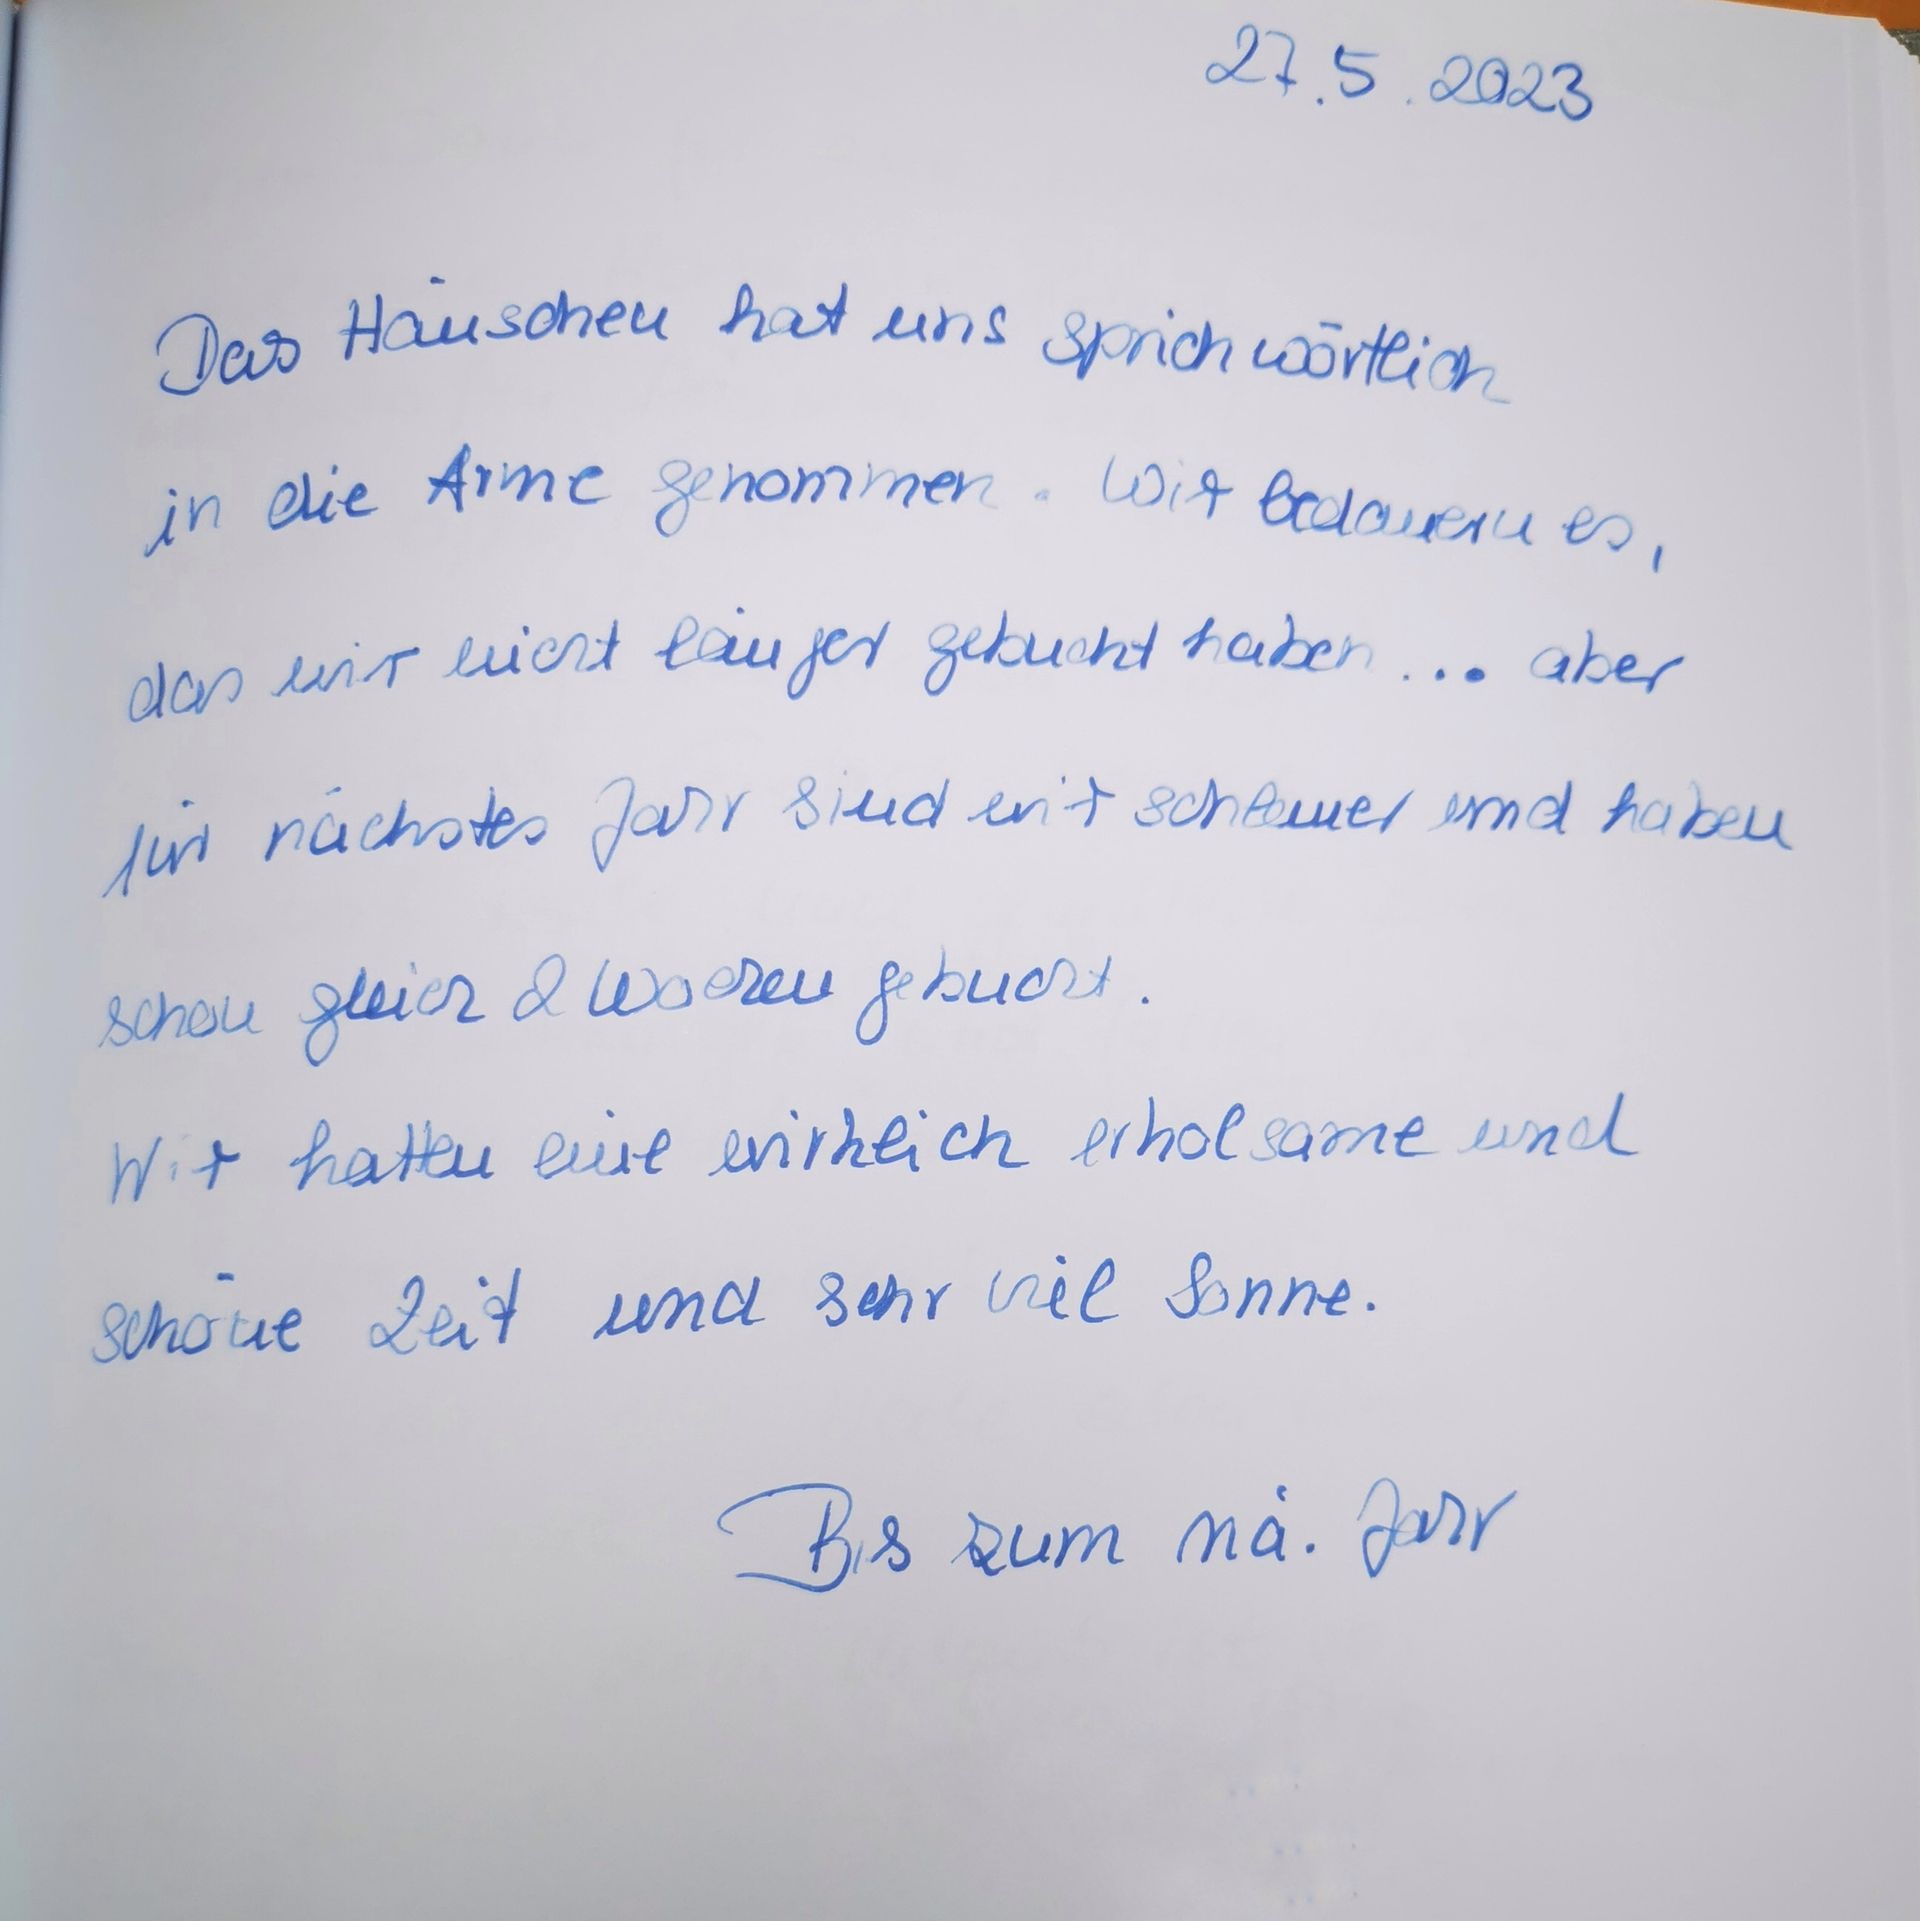 27.5.2023
Das Häuschen hat uns sprichwörtlich
in die Arme genommen. Wir bedauern es,
das wir nicht länger gebucht haben... aber
für nächstes Jahr sind wir schlauer und haben
schon gleich 2 Wochen gebucht.
Wir hatten eine wirklich erholsame und
schöne Zeit und sehr viel Sonne.
Bis zum nä. Jahr